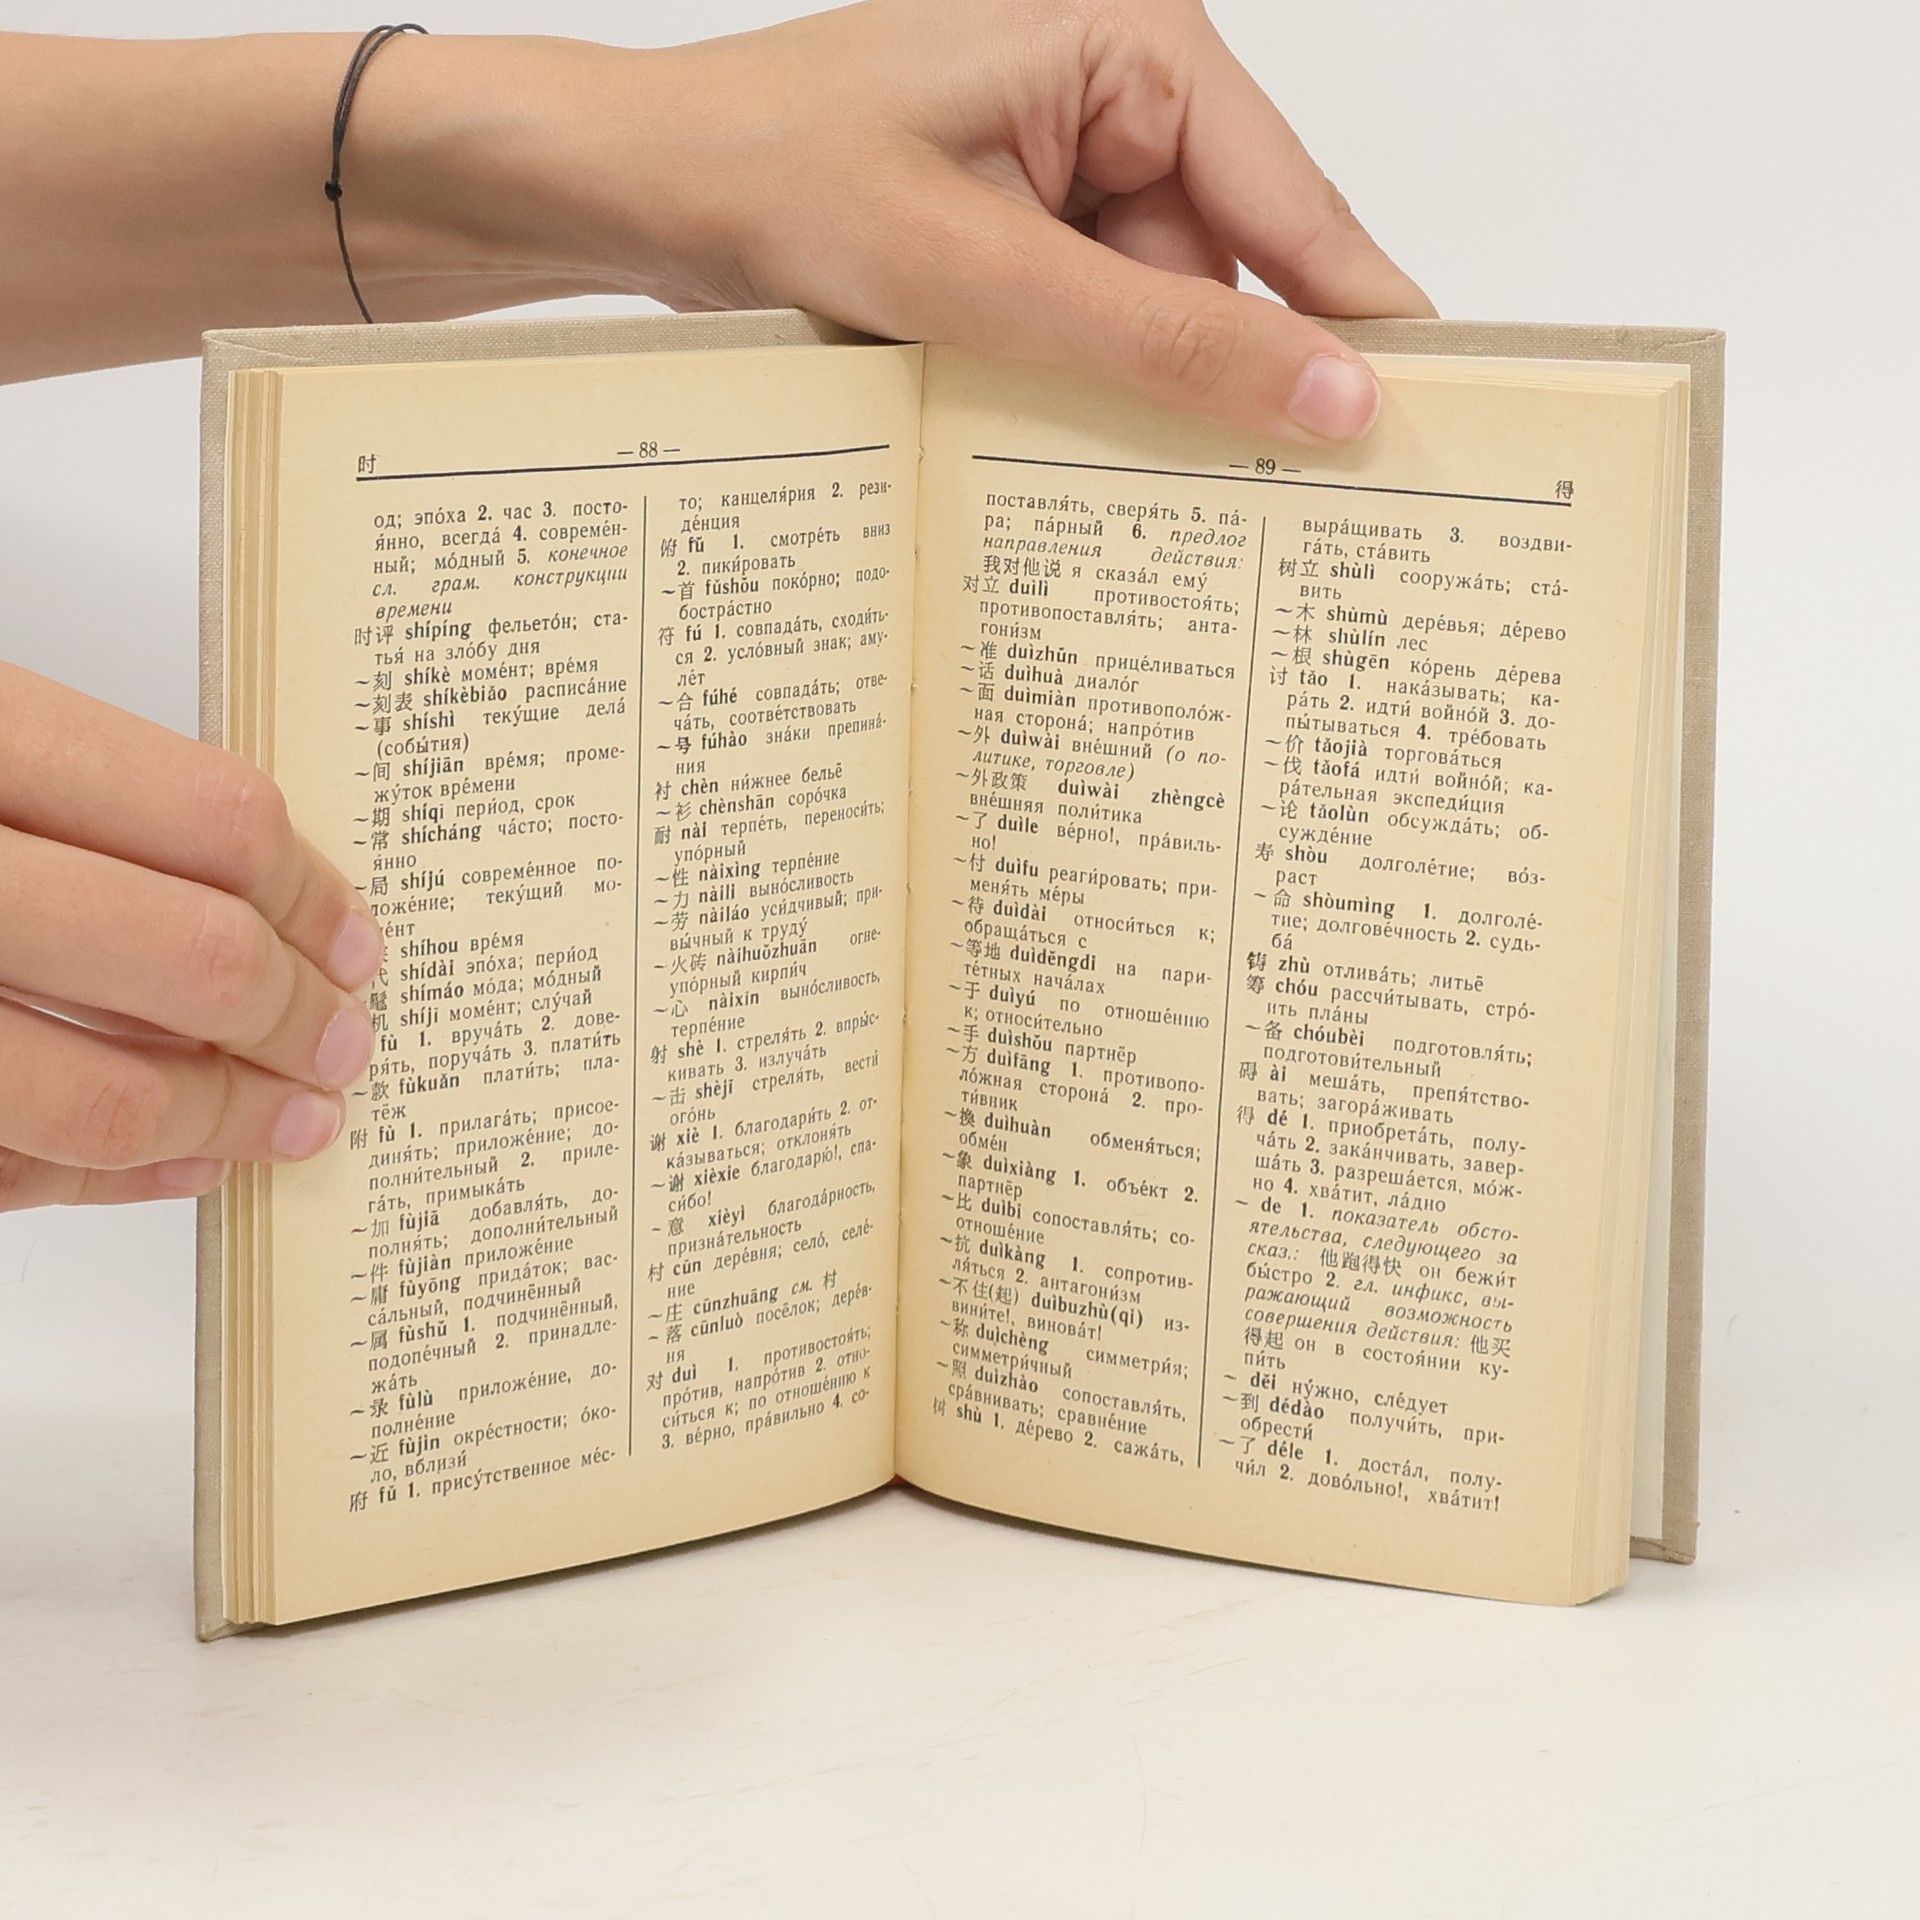 时
— 88 —
од; эпо́ха 2. час 3. посто-
я́нно, всегда́ 4. совреме́н-
ный; мо́дный 5. конечное
сл. грам. конструкции
времени
时评 shípíng фельето́н; ста-
тья́ на зло́бу дня
~刻 shíkè моме́нт; вре́мя
~刻表 shíkèbiǎo расписа́ние
~事 shíshì теку́щие дела́
(собы́тия)
~间 shíjiān вре́мя; проме-
жу́ток вре́мени
~期 shíqī пери́од, срок
~常 shícháng ча́сто; посто-
я́нно
~局 shíjú совреме́нное по-
ложе́ние; теку́щий мо-
ме́нт
shíhou вре́мя
代 shídài эпо́ха; пери́од
~髦 shímáo мо́да; мо́дный
机 shíjī моме́нт; слу́чай
fù 1. вруча́ть 2. дове-
ря́ть, поруча́ть 3. плати́ть
~款 fùkuǎn плати́ть; пла-
тёж
附 fù 1. прилага́ть; присое-
диня́ть; приложе́ние; до-
полни́тельный 2. приле-
га́ть, примыка́ть
~加 fùjiā добавля́ть, до-
полня́ть; дополни́тельный
~件 fùjiàn приложе́ние
~庸 fùyōng прида́ток; вас-
са́льный, подчинённый
~属 fùshǔ 1. подчинённый,
подопе́чный 2. принадле-
жа́ть
~录 fùlù приложе́ние, до-
полне́ние
~近 fùjìn окре́стности; о́ко-
ло, вблизи́
府 fǔ 1. прису́тственное ме́с-
то; канцеля́рия 2. рези-
де́нция
俯 fǔ 1. смотре́ть вниз
2. пики́ровать
~首 fǔshǒu поко́рно; подо-
бостра́стно
符 fú 1. совпада́ть, сходи́ть-
ся 2. усло́вный знак; аму-
ле́т
~合 fúhé совпада́ть; отве-
ча́ть, соотве́тствовать
~号 fúhào зна́ки препина́-
ния
衬 chèn ни́жнее бельё
~衫 chènshān соро́чка
耐 nài терпе́ть, переноси́ть;
упо́рный
~性 nàixìng терпе́ние
~力 nàilì выно́сливость
~劳 nàiláo уси́дчивый; при-
вы́чный к труду́
~火砖 nàihuǒzhuān огне-
упо́рный кирпи́ч
~心 nàixīn выно́сливость,
терпе́ние
射 shè 1. стреля́ть 2. впры́с-
кивать 3. излуча́ть
~击 shèjī стреля́ть, вести́
ого́нь
谢 xiè 1. благодари́ть 2. от-
ка́зываться; отклоня́ть
~谢 xièxie благодарю́!, спа-
си́бо!
~意 xièyì благода́рность,
призна́тельность
村 cūn дере́вня; село́, селе́-
ние
~庄 cūnzhuāng см. 村
~落 cūnluò посёлок; дере́в-
ня
对 duì 1. противостоя́ть;
про́тив, напро́тив 2. отно-
си́ться к; по отноше́нию к
3. ве́рно, пра́вильно 4. со-
— 89 —
得
поставля́ть, сверя́ть 5. па́-
ра; па́рный 6. предлог
направления действия:
我对他说 я сказа́л ему́
对立 duìlì противостоя́ть;
противопоставля́ть; анта-
гони́зм
~准 duìzhǔn прице́ливаться
~话 duìhuà диало́г
~面 duìmiàn противополо́ж-
ная сторона́; напро́тив
~外 duìwài вне́шний (о по-
литике, торговле)
~外政策 duìwài zhèngcè
вне́шняя поли́тика
~了 duìle ве́рно!, пра́виль-
но!
~付 duìfu реаги́ровать; при-
меня́ть ме́ры
~待 duìdài относи́ться к;
обраща́ться с
~等地 duìděngdi на пари-
те́тных нача́лах
~于 duìyú по отноше́нию
к; относи́тельно
~手 duìshǒu партнёр
~方 duìfāng 1. противопо-
ло́жная сторона́ 2. про-
ти́вник
~换 duìhuàn обменя́ться;
обме́н
~象 duìxiàng 1. объе́кт 2.
партнёр
~比 duìbǐ сопоставля́ть; со-
отноше́ние
~抗 duìkàng 1. сопротив-
ля́ться 2. антагони́зм
~不住(起) duìbuzhù(qǐ) из-
вини́те!, винова́т!
~称 duìchèng симметри́я;
симметри́чный
~照 duìzhào сопоставля́ть,
сра́внивать; сравне́ние
树 shù 1. де́рево 2. сажа́ть,
выра́щивать 3. воздви-
га́ть, ста́вить
树立 shùlì сооружа́ть; ста́-
вить
~木 shùmù дере́вья; де́рево
~林 shùlín лес
~根 shùgēn ко́рень де́рева
讨 tǎo 1. нака́зывать; ка-
ра́ть 2. идти́ войно́й 3. до-
пы́тываться 4. тре́бовать
~价 tǎojià торгова́ться
~伐 tǎofá идти́ войно́й; ка-
ра́тельная экспеди́ция
~论 tǎolùn обсужда́ть; об-
сужде́ние
寿 shòu долголе́тие; во́з-
раст
~命 shòumìng 1. долголе́-
тие; долгове́чность 2. судь-
ба́
铸 zhù отлива́ть; литьё
筹 chóu рассчи́тывать, стро́-
ить пла́ны
~备 chóubèi подготовля́ть;
подготови́тельный
碍 ài меша́ть, препя́тство-
вать; загора́живать
得 dé 1. приобрета́ть, полу-
ча́ть 2. зака́нчивать, завер-
ша́ть 3. разреша́ется, мо́ж-
но 4. хва́тит, ла́дно
~ de 1. показатель обсто-
ятельства, следующего за
сказ.: 他跑得快 он бежи́т
бы́стро 2. гл. инфикс, вы-
ражающий возможность
совершения действия: 他买
得起 он в состоя́нии ку-
пи́ть
~ děi ну́жно, сле́дует
~到 dédào получи́ть, при-
обрести́
~了 déle 1. доста́л, полу-
чи́л 2. дово́льно!, хва́тит!